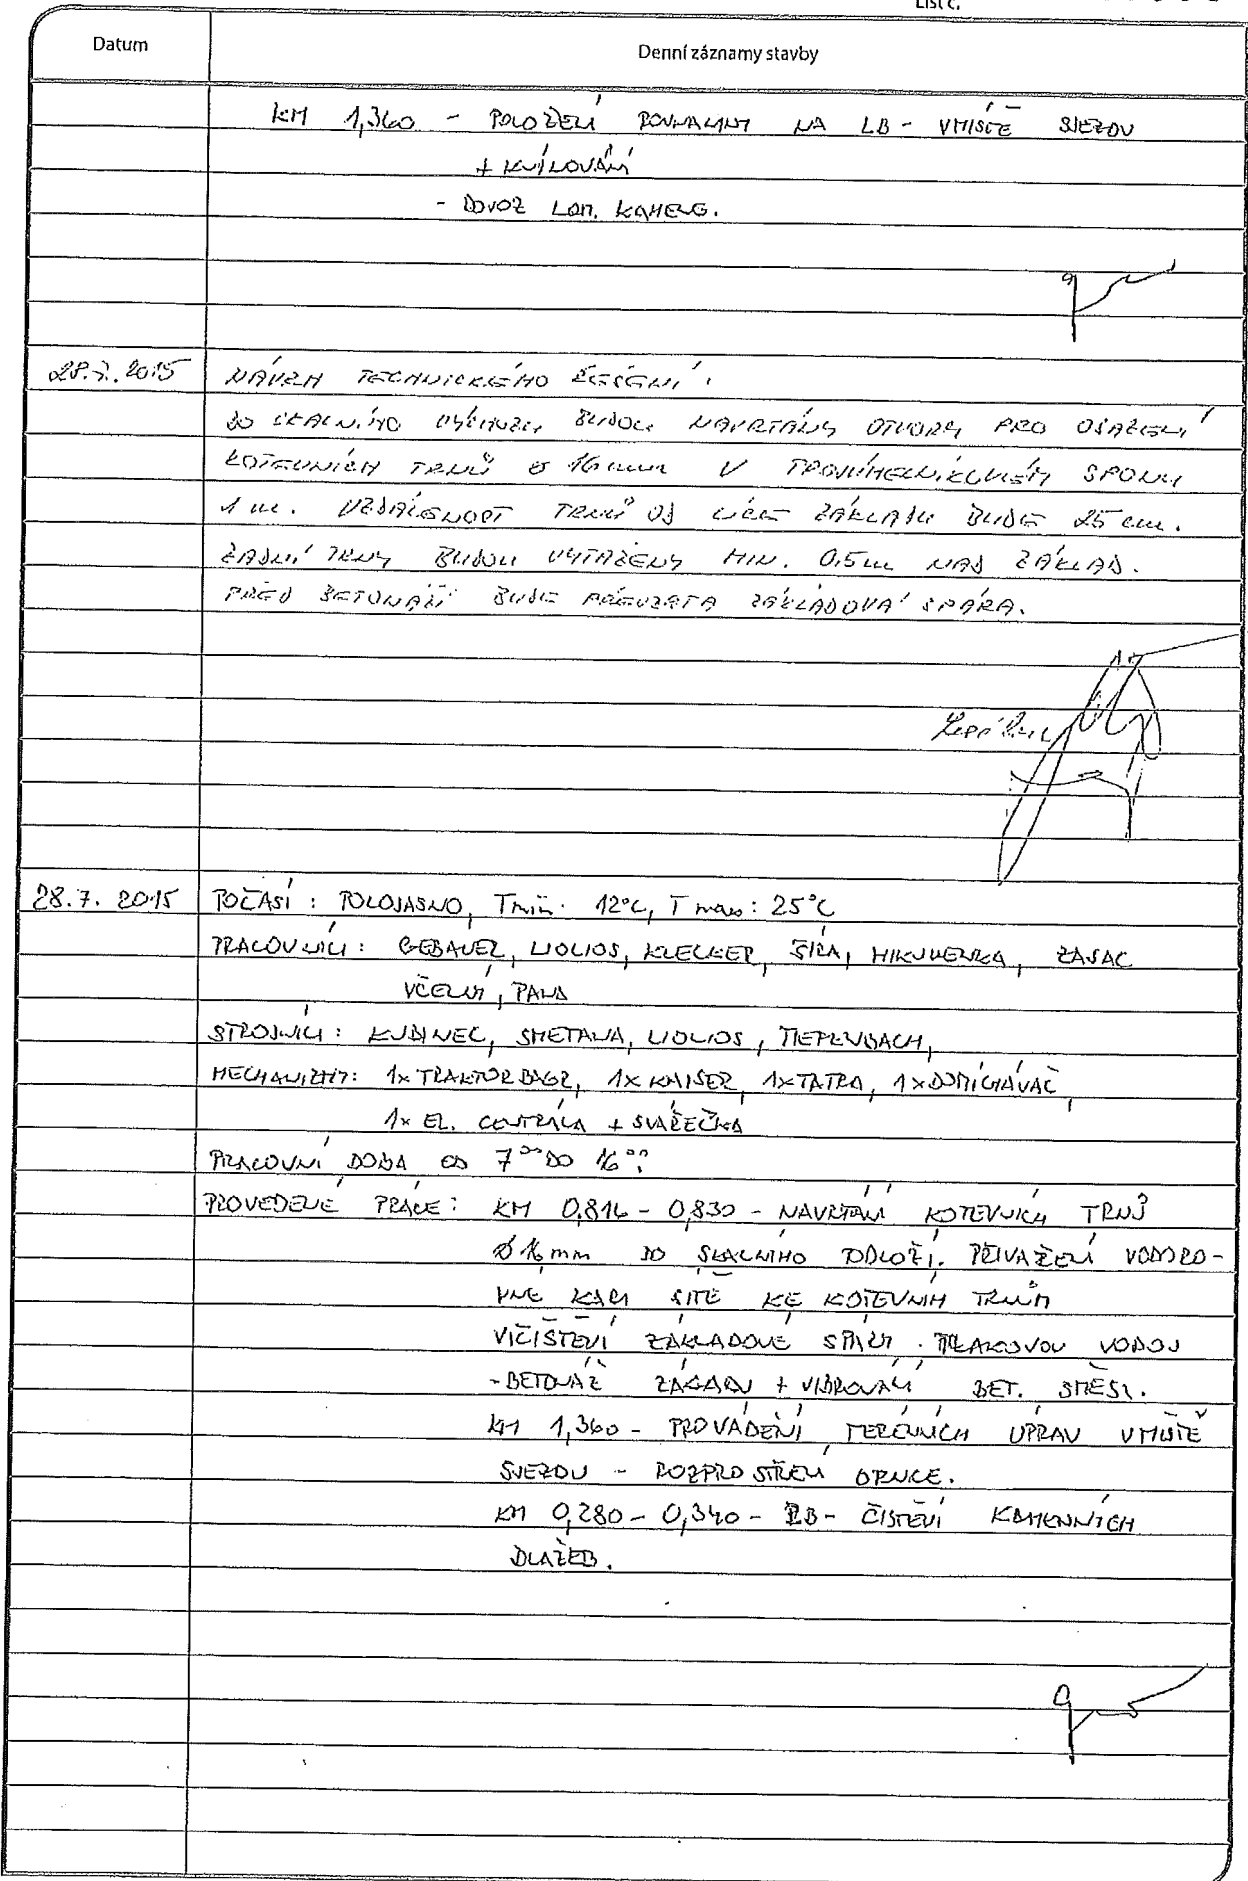 List č.
Datum
Denní záznamy stavby
KM 1,360 - POLOŽENÍ ROVNANINY NA LB - VMÍSTĚ SJEZDU
+ KLÍNOVÁNÍ
- DOVOZ LOM. KAMENE.
28.7.2015
NÁVRH TECHNICKÉHO ŘEŠENÍ:
DO SKALNÍHO VÝCHOZU BUDOU NAVRTÁNY OTVORY PRO OSAZENÍ
KOTEVNÍCH TRNŮ Ø 16 mm V TROJÚHELNÍKOVÉM SPONU
1 m. VZDÁLENOST TRNŮ OD LÍCE ZÁKLADU BUDE 25 cm.
ZADNÍ TRNY BUDOU VYTAŽENY MIN. 0,5m NAD ZÁKLAD.
PŘED BETONÁŽÍ BUDE PŘEVZATA ZÁKLADOVÁ SPÁRA.
28.7. 2015
POČASÍ : POLOJASNO, Tmin: 12°C, T max: 25°C
PRACOVNÍCI: GEBAUER, LIOLIOS, KLECKER, ŠÍRA, MIKULENKA, ZAJAC
VČELNÝ, PANA
STROJNÍCI: KUBINEC, SMETANA, LIOLIOS, TIEFENBACH,
MECHANIZMY: 1x TRAKTORBAGR, 1x KAISER, 1x TATRA, 1x DOMÍCHÁVAČ,
1x EL. CENTRÁLA + SVÁŘEČKA
PRACOVNÍ DOBA OD 7⁰⁰ DO 16⁰⁰
PROVEDENÉ PRÁCE: KM 0,814 - 0,830 - NAVRTÁNÍ KOTEVNÍCH TRNŮ
Ø 16 mm DO SKALNÍHO PODLOŽÍ. PŘIVAŘENÍ VODORO-
VNÉ KARI SÍTĚ KE KOTEVNÍM TRNŮM
VIČIŠTĚNÍ ZÁKLADOVÉ SPÁRY TLAKOVOU VODOU
- BETONÁŽ ZÁKLADU + VIBROVÁNÍ BET. SMĚSI.
KM 1,360 - PROVÁDĚNÍ TERÉNNÍCH ÚPRAV VMÍSTĚ
SJEZDU - ROZPROSTŘENÍ ORNICE.
KM 0,280 - 0,340 - PB - ČISTĚNÍ KAMENNÝCH
DLAŽEB.